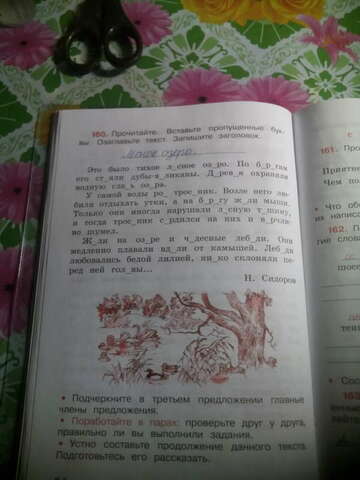 160. Прочитайте. Вставьте пропущенные бук-
вы. Озаглавьте текст. Запишите заголовок.
Лесное озеро.
Это было тихое л_сное оз_ро. По б_р_гам
его ст_яли дубы-в_ликаны. Д_рев_я охраняли
водную гла_ь оз_ра.
У самой воды ро_ трос_ник. Возле него лю-
били отдыхать утки, а на б_р_гу ж_ли мыши.
Только они иногда нарушали л_сную т_шину,
и тогда трос_ник с_рдился на них и в_рчли-
во шумел.
Ж_ли на оз_ре и ч_десные леб_ди. Они
медленно плавали вд_ли от камышей. Леб_ди
любовались белой лилией, ни_ко склоняли пе-
ред ней гол_вы...
Н. Сидоров
• Подчеркните в третьем предложении главные
члены предложения.
• Поработайте в парах: проверьте друг у друга,
правильно ли вы выполнили задания.
• Устно составьте продолжение данного текста.
Подготовьтесь его рассказать.
161.
162.
163